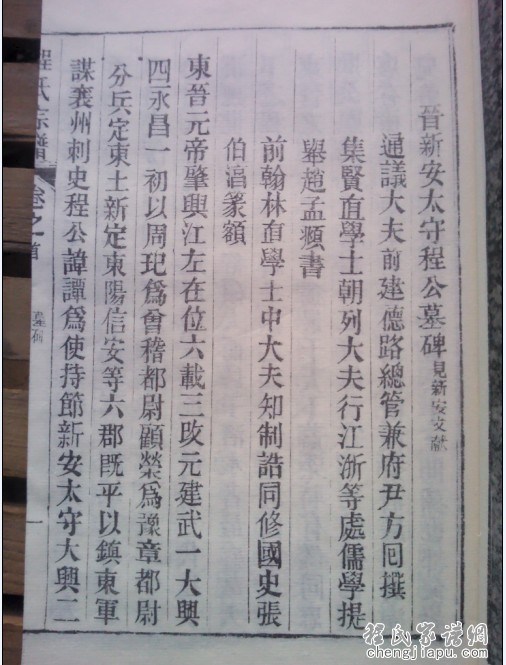 晉新安太守程公墓碑見新安文献
通議大夫前建德路總管兼府尹方囘撰
集賢直學士朝列大夫行江浙等處儒學提
舉趙孟頫書
前翰林直學士中大夫知制誥同修國史張
伯淳篆額
東晉元帝肇興江左在位六載三改元建武一大興
四永昌一初以周玘爲會稽都尉顧榮爲豫章都尉
分兵定東土新定東陽信安等六郡既平以鎮東軍
謀襄州刺史程公諱譚爲使持節新安太守大興二
程氏宗譜
卷之首
墓碑
一
程氏家譜網
chengjiapu.com